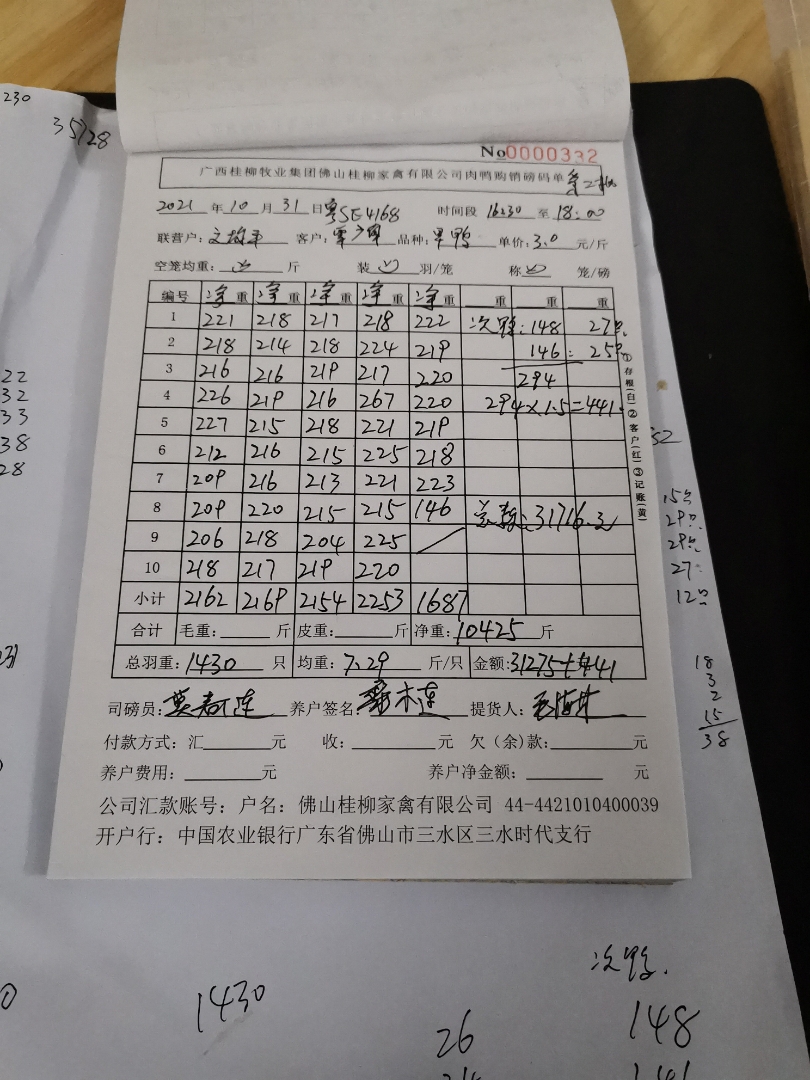 230
35728
No0000332
广西桂柳牧业集团佛山桂柳家禽有限公司肉鸭购销磅码单
2021 年 10 月 31 日 粤SE4168 时间段 16:30 至 18:00
联营户: 客户: 品种: 鸭 单价: 3.0 元/斤
空笼均重: 斤 装 羽/笼 称 笼/磅
编号 净重 净重 净重 净重 净重 重 重 重
1 221 218 217 218 222 次鸭: 148 27只
2 218 214 218 224 219 146: 25只
3 216 216 219 217 220 294
4 226 219 216 267 220 294×1.5=441
5 227 215 218 221 219
6 212 216 215 225 218
7 209 216 213 221 223
8 209 220 215 215 146 总数: 31716元
9 206 218 204 225
10 218 217 219 220
小计 2162 2169 2154 2253 1687
合计 毛重: 斤 皮重: 斤 净重: 10425 斤
总羽重: 1430 只 均重: 7.29 斤/只 金额: 31275+441
司磅员: 养户签名: 提货人:
付款方式: 汇 元 收: 元 欠(余)款: 元
养户费用: 元 养户净金额: 元
公司汇款账号: 户名: 佛山桂柳家禽有限公司 44-4421010400039
开户行: 中国农业银行广东省佛山市三水区三水时代支行
①存根(白)②客户(红)③记账(黄)
22
32
33
38
28
15只
29只
29只
27
12只
18
3
2
15
38
次鸭.
1430
26
148